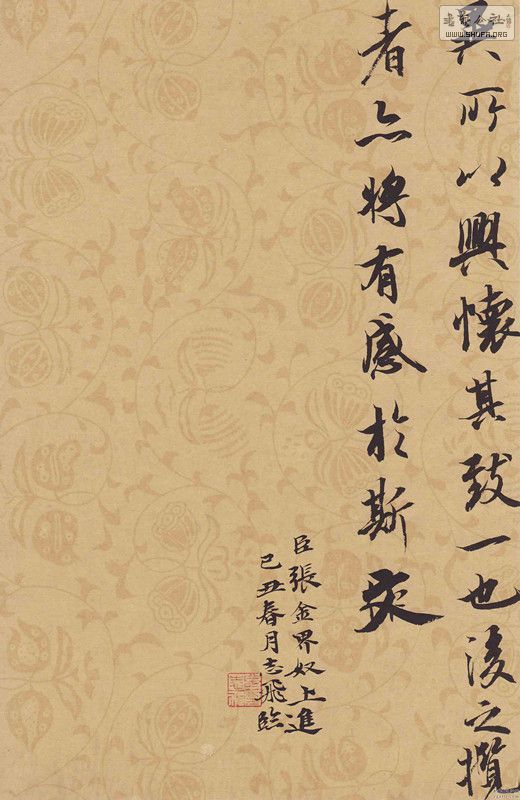 書藝公社
WWW.SHUFA.ORG
異所以興懷其致一也後之攬
者亦將有感於斯文
臣張金界奴上進
己丑春月志飛臨